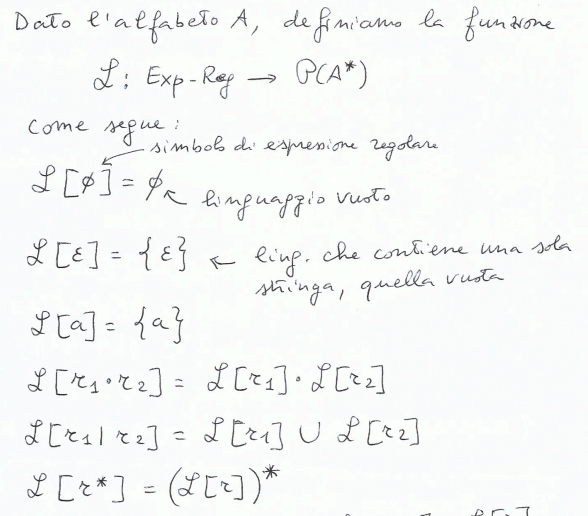 Dato l'alfabeto A, definiamo la funzione
ℒ : Exp-Reg → P(A*)
come segue:
simbolo di espressione regolare
ℒ[ϕ] = ϕ ← linguaggio vuoto
ℒ[ε] = {ε} ← ling. che contiene una sola
stringa, quella vuota
ℒ[a] = {a}
ℒ[r₁·r₂] = ℒ[r₁]·ℒ[r₂]
ℒ[r₁|r₂] = ℒ[r₁] ∪ ℒ[r₂]
ℒ[r*] = (ℒ[r])*